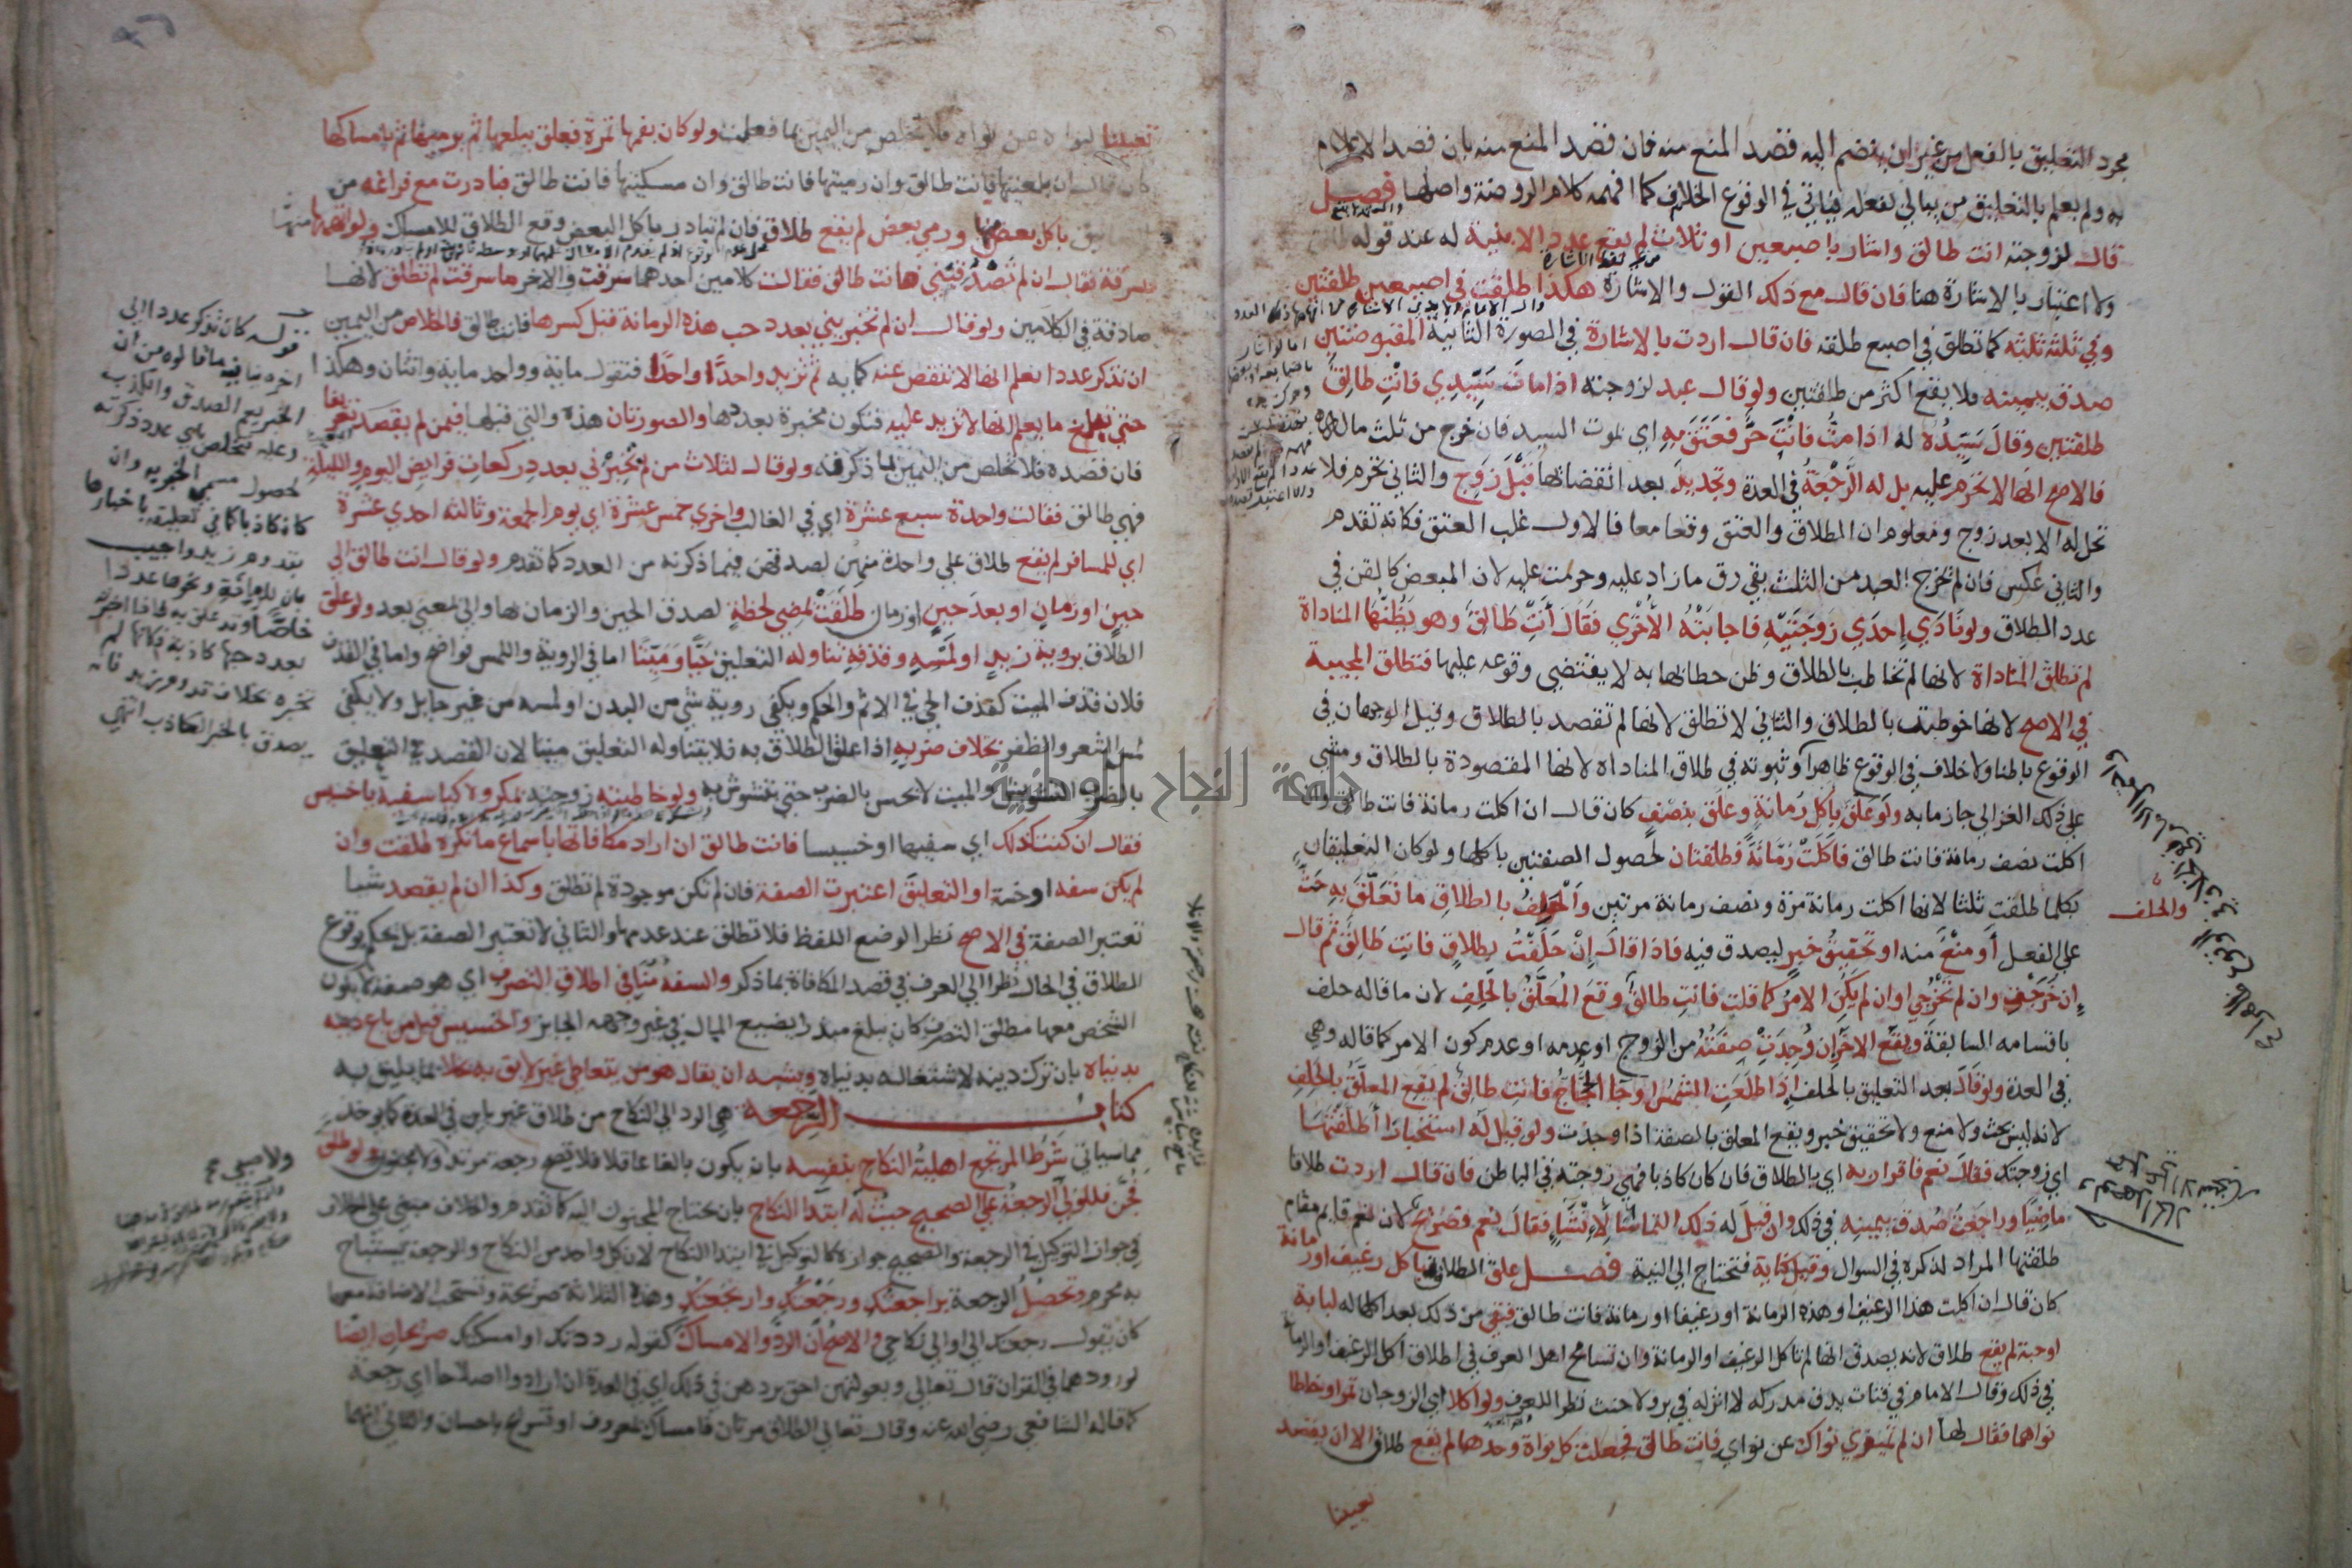 مجرد التعليق بالفعل من غير ان ينضم اليه قصد المنع منه فان قصد المنع منه بان قصد الاعلام
به ولم يعلم بالتعليق من يبالي بفعله فياتي في الوقوع الخلاف كما افهمه كلام الروضة واصلها فصل
قال لزوجته انت طالق واشار باصبعين او ثلاث لم يقع عدد الا بنية له عند قوله طالق
ولا اعتبار بالاشارة هنا فان قال مع ذلك القول والاشارة هكذا طلقت في اصبعين طلقتين
وفي ثلثة ثلثه كما تطلق في اصبع طلقه فان قال اردت بالاشارة في الصورة الثانية المقبوضتين
صدق بيمينه فلا يقع اكثر من طلقتين ولو قال عبد لزوجته اذا مات سيدي فانت طالق
طلقتين وقال سيده له اذا مت فانت حر فعتق به اي بموت السيد فان خرج من ثلث ماله
فالاصح انها لا تحرم عليه بل له الرجعة في العدة وتجديد بعد انقضائها قبل زوج والثاني تحرم فلا
تحل له الا بعد زوج ومعلوم ان الطلاق والعتق وقعا معا فالاول غلب العتق فكانه تقدم
والثاني عكس فان لم يخرج العبد من الثلث بقي رق ما زاد عليه وحرمت عليه لان المبعض كالقن في
عدد الطلاق ولو نادى احدي زوجتيه فاجابته الاخري فقال انت طالق وهو يظنها المناداة
لم تطلق المناداة لانها لم تخاطب بالطلاق وظن خطابها به لا يقتضي وقوعه عليها وتطلق المجيبة
في الاصح لانها خوطبت بالطلاق والثاني لا تطلق لانها لم تقصد بالطلاق وقيل الوجهان في
الوقوع باطنا ولا خلاف في الوقوع ظاهرا وثبوته في طلاق المناداه لانها المقصودة بالطلاق ومشي
علي ذلك الغزالي جازما به ولو علق باكل رمانة وعلق بنصف كان قال ان اكلت رمانة فانت طالق وان
اكلت نصف رمانة فانت طالق فاكلت رمانة فطلقتان لحصول الصفتين باكلها ولو كان التعليقان
بكلما طلقت ثلثا لانها اكلت رمانة مرة ونصف رمانة مرتين والحلف بالطلاق ما تعلق به حث
والحلف
علي الفعل او منع منه او تحقيق خبر ليصدق فيه فاذا قال ان حلفت بطلاق فانت طالق ثم قال
ان خرجت وان لم تخرجي او ان لم يكن الامر كما قلت فانت طالق وقع المعلق بالحلف لان ما قاله حلف
باقسامه السابقة ويقع الاخر ان وجدت صفته من الزوج او عدمه او عدم كون الامر كما قاله وهي
في العدة ولو قال بعد التعليق بالحلف اذا طلعت الشمس او جا الحجاج فانت طالق لم يقع المعلق بالحلف
لانه ليس بحث ولا منع ولا تحقيق خبر ويقع المعلق بالصفة اذا وجدت ولو قيل له استخبارا اطلقتها
اي زوجتك فقال نعم فاقرار به اي بالطلاق فان كان كاذبا فهي زوجته في الباطن فان قال اردت طلاقا
ماضيا وراجعت صدق بيمينه في ذلك وان قيل له ذلك التماسا لانشاء فقال نعم فصريح لان نعم قايم مقام
طلقتها المراد لذكره في السوال وقيل كناية فتحتاج الي النية فصل علق الطلاق باكل رغيف او رمانة
كان قال ان اكلت هذا الرغيف او هذه الرمانة او رغيفا او رمانة فانت طالق فبقي من ذلك بعد اكلها له لبابة
او حبة لم يقع طلاق لانه يصدق انها لم تاكل الرغيف او الرمانة وان تسامح اهل العرف في اطلاق اكل الرغيف او الرمانة
في ذلك وقال الامام في فتات يدق مدركه لا اثر له في بر ولا حنث نظرا للعرف ولو اكلا اي الزوجان تمرا وخلطا
نواهما فقال لها ان لم تميزي نواك عن نواي فانت طالق فجعلت كل نواة وحدها لم يقع طلاق الا ان يقصد
تعيينا
تعيينا لنواه عن نواها فلا يتخلص من اليمين بما فعلت ولو كان بفمها تمرة فعلق ببلعها ثم برميها ثم بامساكها
كان قال ان بلعتيها فانت طالق وان رميتها فانت طالق وان امسكتيها فانت طالق فبادرت مع فراغه من
التعليق باكل بعضها ورمي بعض لم يقع طلاق فان لم تبادر باكل البعض وقع الطلاق للامساك ولو اتهمها
بسرقة فقال ان لم تصدقيني فانت طالق فقالت كلامين احدهما سرقت والاخر ما سرقت لم تطلق لانها
صادقة في الكلامين ولو قال ان لم تخبريني بعدد حب هذه الرمانة قبل كسرها فانت طالق فالخلاص من اليمين
ان تذكر عددا يعلم انها لا تنقص عنه كمايه ثم تزيد واحدا واحدا فتقول ماية وواحد ماية واثنان وهكذا
حتي تبلغ ما يعلم انها لا تزيد عليه فتكون مخبرة بعددها والصورتان هذه والتي قبلها فيمن لم يقصد تعريفا
فان قصده فلا تخلص من اليمين بما ذكرته ولو قال لثلاث من لم تخبرني بعدد ركعات فرايض اليوم والليلة
فهي طالق فقالت واحدة سبع عشرة اي في الغالب واخري خمس عشرة اي يوم الجمعة وثالثه احدي عشرة
اي للمسافر لم يقع طلاق علي واحدة منهن لصدقهن فيما ذكرته من العدد كما تقدم ولو قال انت طالق الي
حين او زمان او بعد حين او زمان طلقت بمضي لحظة لصدق الحين والزمان بها والي بمعني بعد ولو علق
الطلاق بروية زيد او لمسه وقذفه تناوله التعليق حيا وميتا اما في الروية واللمس فواضح واما في القذف
فلان قذف الميت كقذف الحي في الاثم والحكم ويكفي روية شي من البدن او لمسه من غير حايل ولا يكفي
لمس الشعر والظفر بخلاف ضربه اذا علق الطلاق به فلا يتناوله التعليق ميتا لان القصد في التعليق
بالضرب التشويش والميت لا يحس بالضرب حتي يتشوش به ولو خاطبته زوجته بمكروه كيا سفيه يا خسيس
فقال ان كنت كذلك اي سفيها او خسيسا فانت طالق ان اراد مكافاتها باسماع ما تكره طلقت وان
لم يكن سفه او خسة او التعليق اعتبرت الصفة فان لم تكن موجودة لم تطلق وكذا ان لم يقصد شيا
تعتبر الصفة في الاصح نظرا لوضع اللفظ فلا تطلق عند عدمها والثاني لا تعتبر الصفة بل يحكم بوقوع
الطلاق في الحال نظرا الي العرف في قصد المكافاة بما ذكر والسفه منافي اطلاق التصرف اي هو صفة لا يكون
الشخص معها مطلق التصرف كان يبلغ مبذرا يضيع المال في غير وجهه الجايز والخسيس قيل من باع دينه
بدنياه بان ترك دينه لاشتغاله بدنياه ويشبه ان يقال هو من يتعاطي غير لايق به بخلا بما يليق به
كتاب الرجعة هي الرد الي النكاح من طلاق غير باين في العدة كما يوخذ
مما سياتي شرط المرتجع اهلية النكاح بنفسه بان يكون بالغا عاقلا فلا تصح رجعة مرتد ولا مجنون ولو طلق
فجن فللولي الرجعة علي الصحيح حيث له ابتدا النكاح بان يحتاج المجنون اليه كما تقدم والخلاف مبني علي الخلاف
في جواز التوكيل في الرجعة والصحيح جوازه كالتوكيل في ابتدا النكاح لان كل واحد من النكاح والرجعة يستباح
به محرم وتحصل الرجعة براجعتك ورجعتك وارتجعتك وهذه الثلاثة صريحة وتستحب الاضافة معها
كان يقول رجعتك الي او الي نكاحي والاصح ان الرد والامساك كقوله رددتك او امسكتك صريحان ايضا
لورودهما في القران قال تعالي وبعولتهن احق بردهن في ذلك اي في العدة ان ارادوا اصلاحا اي رجعة
كما قاله الشافعي رضي الله عنه وقال تعالي الطلاق مرتان فامساك بمعروف او تسريح باحسان والثاني انهما
قوله كان تذكر عددا الي
اخره ينافيه ما قالوه من ان
الخبر يعم الصدق والكذب
وعليه تتخلص باي عدد ذكرته
لحصول مسمي الخبر به وان
كان كاذبا كما في تعليقه باخبارها
بقدوم زيد واجيب
بان للرمانة ونحوها عددا
خاصا وقد علق به فاذا اخبرته
بعدد حبها كاذبة فكانها لم
تخبره بخلاف قدوم زيد فانه
يصدق بالخبر الكاذب انتهي
جامعة النجاح الوطنية